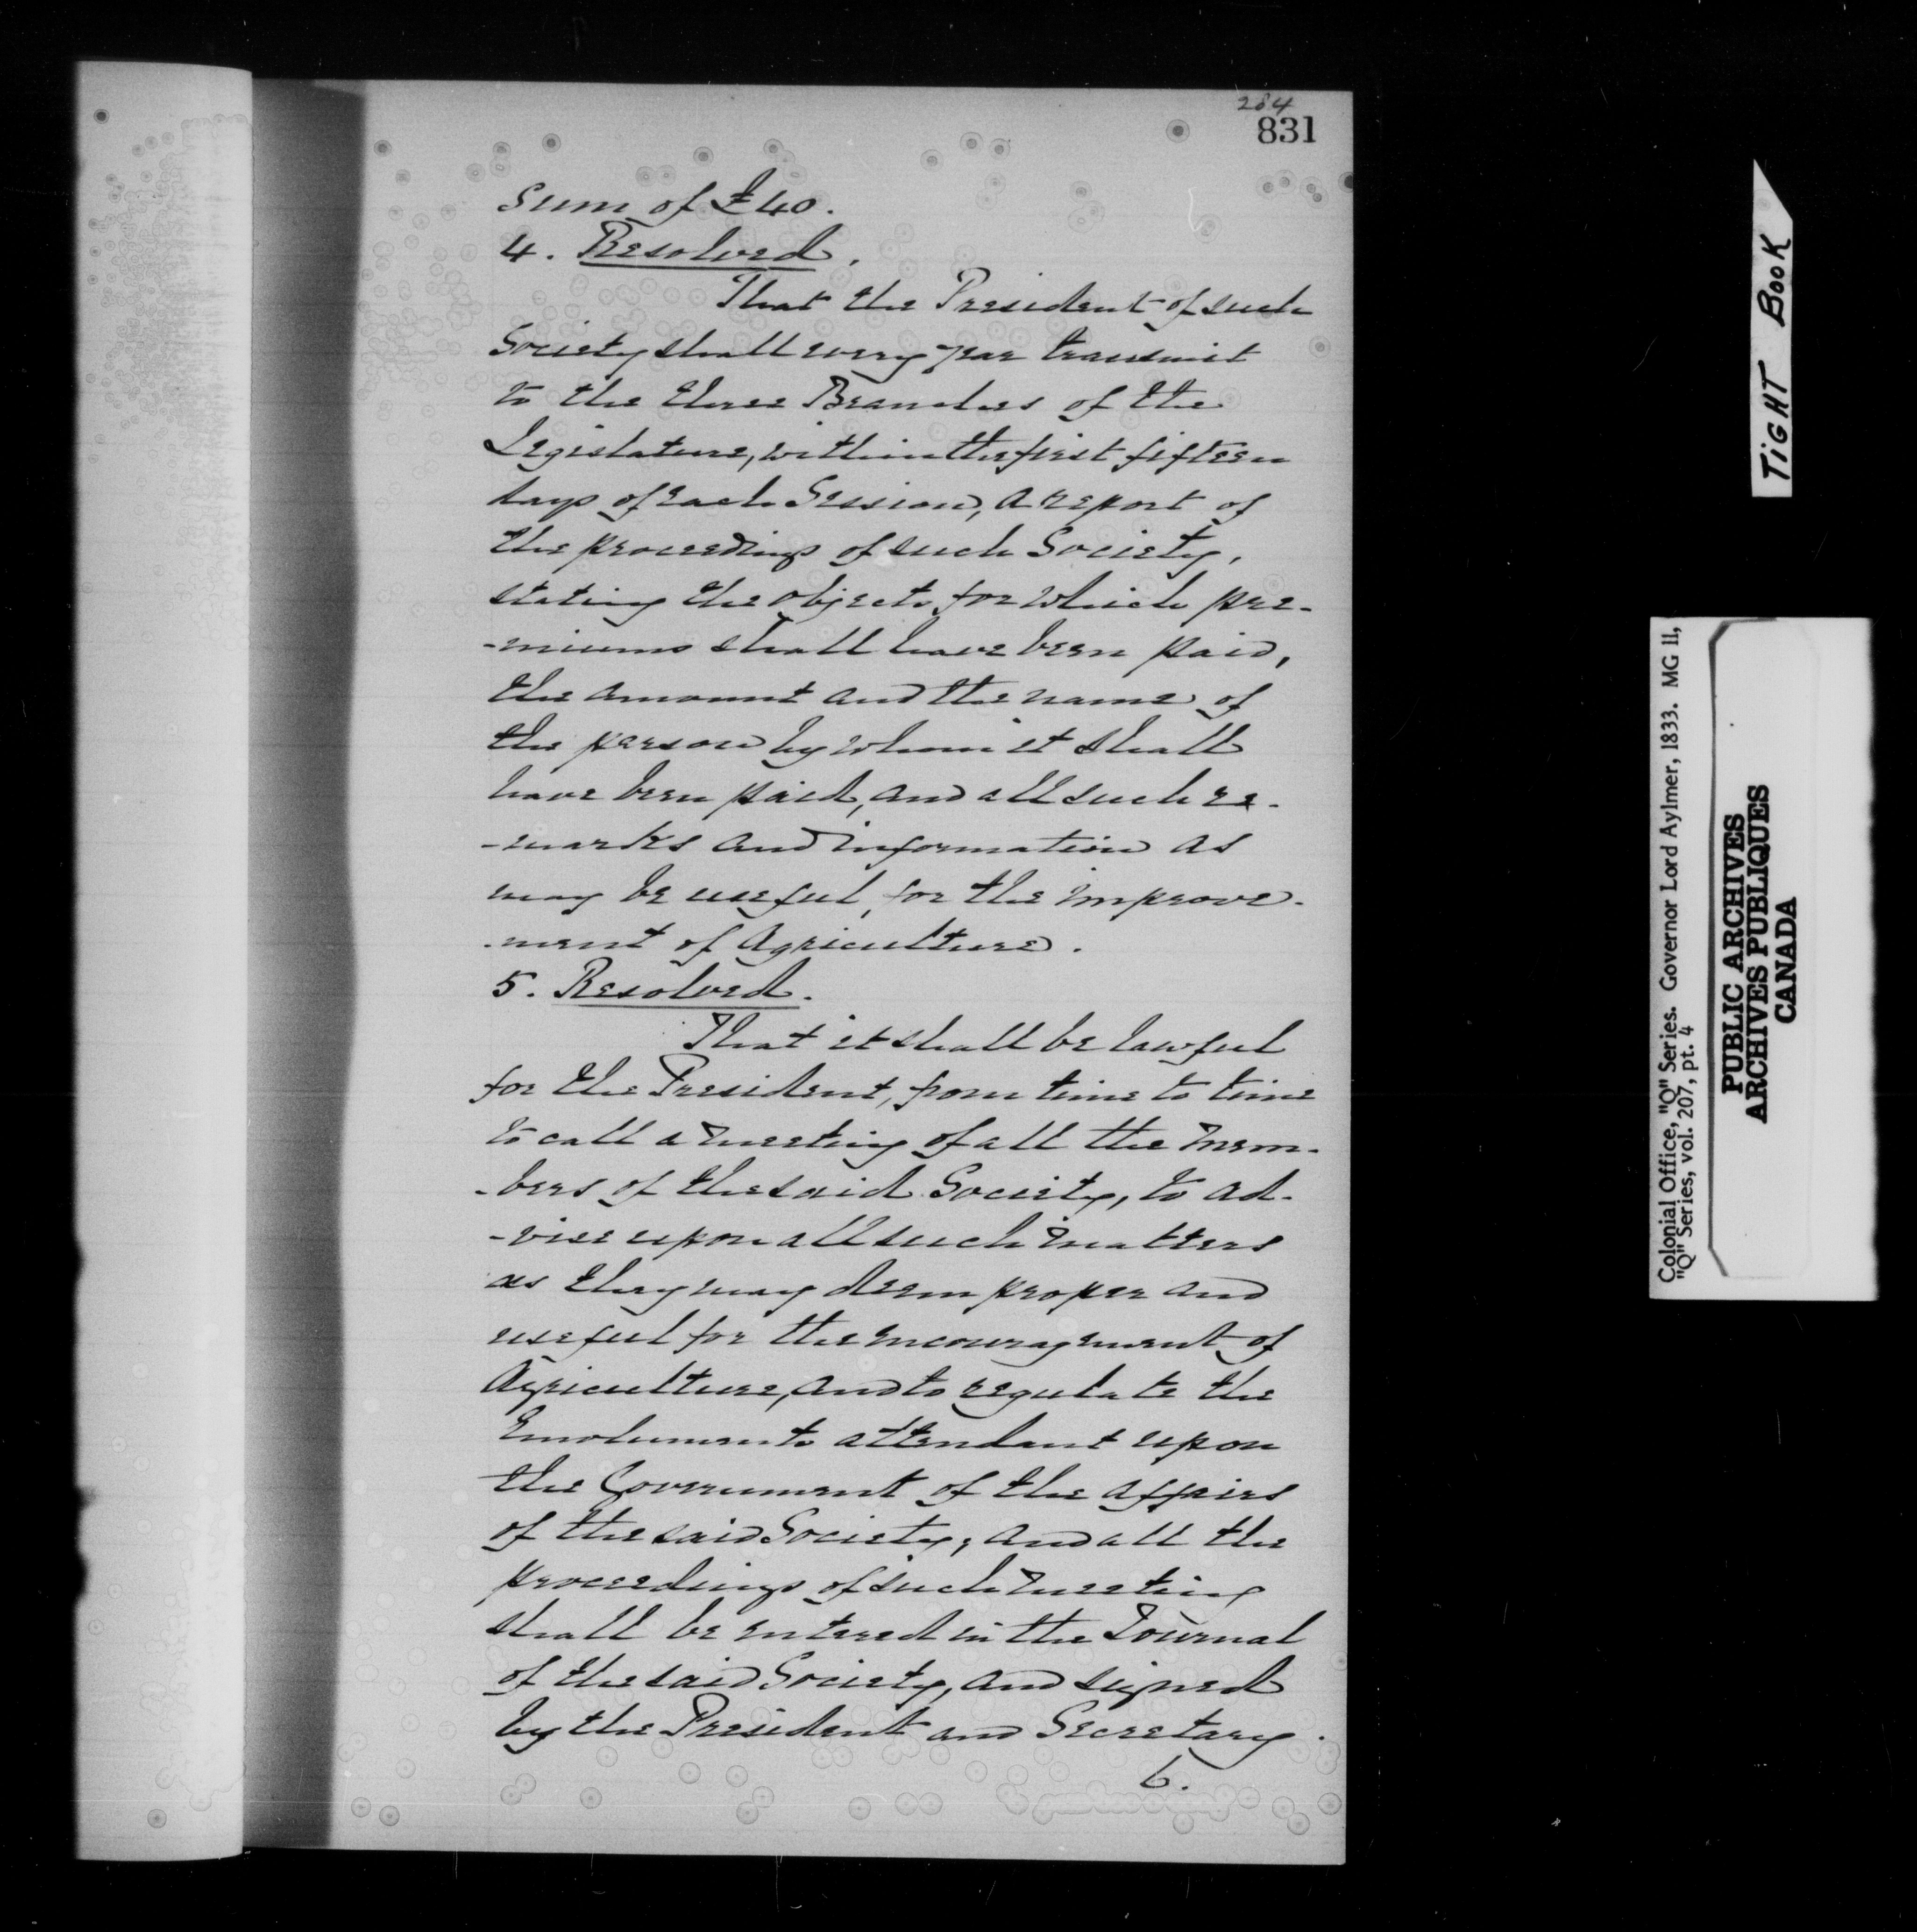 284
831
Sum of £40.
4. Resolved.
That the President of such
Society shall every year transmit
to the three Branches of the
Legislature, within the first fifteen
days of each Session, a report of
the proceedings of such Society,
stating the objects for which pre-
-miums shall have been paid,
the amount and the name of
the person by whom it shall
have been paid, and all such re-
-marks and information as
may be useful, for the improve-
-ment of Agriculture.
5. Resolved.
That it shall be lawful
for the President, from time to time
to call a meeting of all the mem-
-bers of the said Society, to ad-
-vise upon all such matters
as they may deem proper and
useful for the encouragement of
Agriculture, and to regulate the
Emoluments attendant upon
the Government of the affairs
of the said Society; and all the
proceedings of such meeting
shall be entered in the Journal
of the said Society, and signed
by the President and Secretary.
6.
TIGHT BOOK
Colonial Office, "Q" Series. Governor Lord Aylmer, 1833. MG 11,
"Q" Series, vol. 207, pt. 4
PUBLIC ARCHIVES
ARCHIVES PUBLIQUES
CANADA